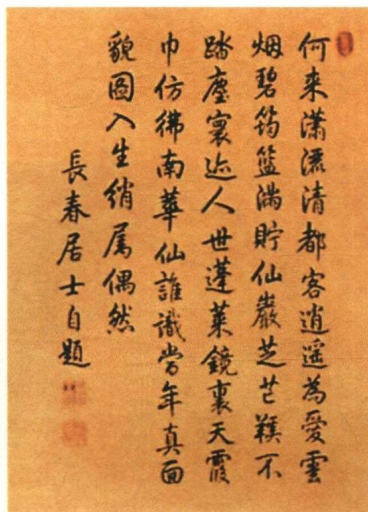 何来瀟洒清都客逍遥為愛雲
烟碧筠籃滿貯仙巖芝芒鞵不
踏塵寰迹人世蓬萊鏡裏天霞
巾仿彿南華仙誰識當年真面
貌圖入生綃属偶然
長春居士自題